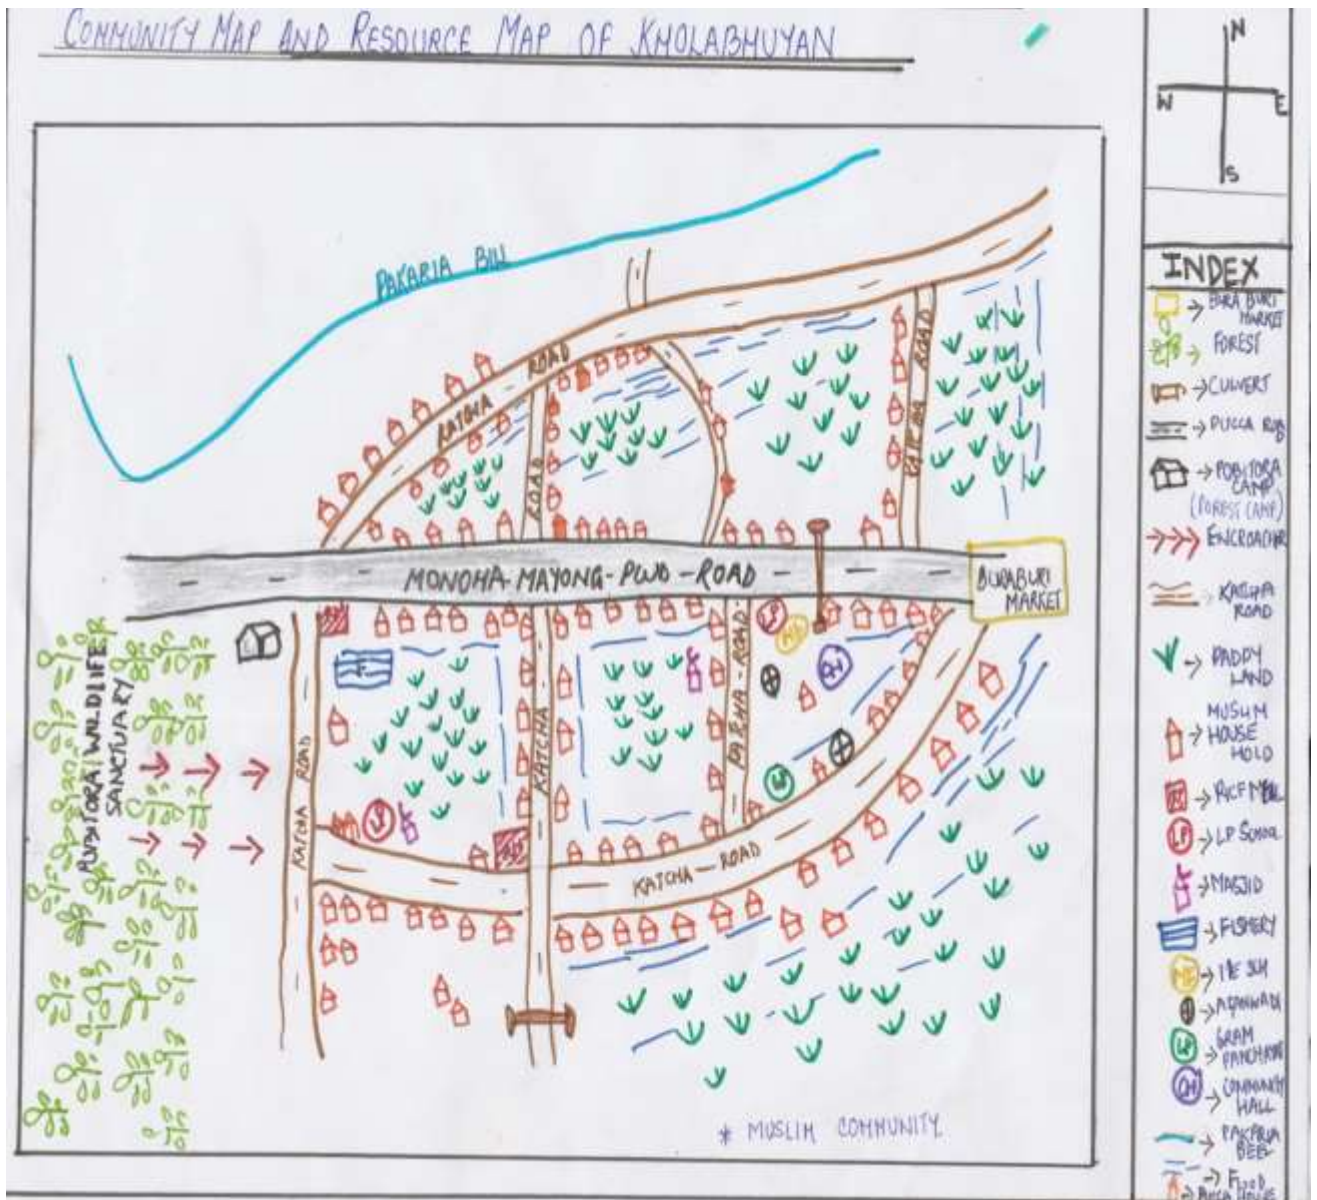 COMMUNITY MAP AND RESOURCE MAP OF KHOLABHUYAN
N
W E
S
PAKARIA BILL
KATCHA ROAD
ROAD
KATCHA ROAD
MONOHA-MAYONG-PWD-ROAD
BURABURI
MARKET
POBITORA WILDLIFE
SANCTUARY
KATCHA ROAD
KATCHA
ROAD
LP
ME
CH
GP
LP
KATCHA-ROAD
* MUSLIM COMMUNITY
INDEX
→ BURA BURI
MARKET
→ FOREST
→ CULVERT
→ PUCCA
→ POBITORA
CAMP
(FOREST CAMP)
ENCROACHER
→ KATCHA
ROAD
→ PADDY
LAND
→ MUSLIM
HOUSE
HOLD
→ RICE MILL
LP → LP SCHOOL
→ MASJID
→ FISHERY
ME →
→
→ GRAM
CH → COMMUNITY
HALL
→ PAKARIA
BEEL
→ FLOOD